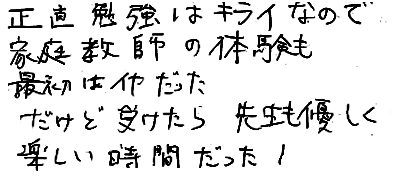 正直勉強はキライなので
家庭教師の体験も
最初はイヤだった
だけど受けたら 先生も優しく
楽しい時間だった!